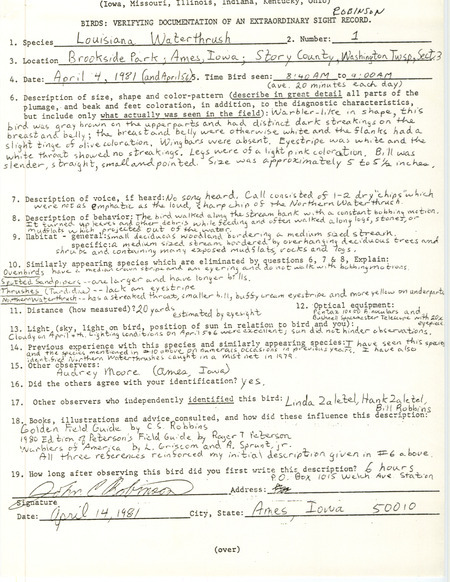 (Iowa, Missouri, Illinois, Indiana, Kentucky, Ohio)
ROBINSON
BIRDS: VERIFYING DOCUMENTATION OF AN EXTRAORDINARY SIGHT RECORD.
1. Species Louisiana Waterthrush 2. Number: 1
3. Location Brookside Park; Ames, Iowa; Story County, Washington Twsp, Sect. 3
4. Date: April 4, 1981 (and April 5, 6) 5. Time Bird seen: 8:40 AM to 9:00 AM
(ave. 20 minutes each day)
6. Description of size, shape and color-pattern (describe in great detail all parts of the
plumage, and beak and feet coloration, in addition, to the diagnostic characteristics,
but include only what actually was seen in the field): Warbler-like in shape, this
bird was gray brown on the upperparts and had distinct dark streakings on the
breast and belly; the breast and belly were otherwise white and the flanks had a
slight tinge of olive coloration. Wingbars were absent. Eyestripe was white and the
white throat showed no streakings. Legs were of a light pink coloration. Bill was
slender, straight, small and pointed. Size was approximately 5 to 5½ inches.
7. Description of voice, if heard: No song heard. Call consisted of 1-2 dry "chips" which
were not as emphatic as the loud, sharp chip of the Northern Waterthrush.
8. Description of behavior: The bird walked along the stream bank with a constant bobbing motion.
It turned up leaves and other debris while feeding and often walked along logs, stones, or
mudflats which projected out of the water.
9. Habitat - general: small deciduous woodland, bordering a medium sized stream.
specific: a medium sized stream bordered by overhanging deciduous trees and
shrubs and containing many exposed mudflats, rocks and logs.
10. Similarly appearing species which are eliminated by questions 6, 7 & 8, Explain:
Ovenbirds have a median crown stripe and an eyering and do not walk with bobbing motions.
Spotted Sandpipers -- are larger and have longer bills.
Thrushes (Turdidae) -- lack an eyestripe
Northern Waterthrush -- has a streaked throat, smaller bill, buffy cream eyestripe and more yellow on underparts
11. Distance (how measured)? 20 yards 12. Optical equipment:
estimated by eyesight
13. Light (sky, light on bird, position of sun in relation to bird and you):
Cloudy on April 4th. Lighting conditions on April 5 & 6 were excellent; sun did not hinder observations.
14. Previous experience with this species and similarly appearing species: I have seen this species
and the species mentioned in #10 above on numerous occasions in previous years. I have also
identified Northern Waterthrushes caught in a mist net in 1978.
15. Other observers:
Audrey Moore (Ames, Iowa)
16. Did the others agree with your identification? yes.
17. Other observers who independently identified this bird: Linda Zaletel, Hank Zaletel,
Bill Robbins
18. Books, illustrations and advice consulted, and how did these influence this description:
Golden Field Guide by C.S. Robbins
1980 Edition of Peterson's Field Guide by Roger T Peterson
Warblers of America by L. Griscom and A. Sprunt, jr.
All three references reinforced my initial description given in #6 above.
19. How long after observing this bird did you first write this description? 6 hours
P.O. Box 1015 Welch Ave Station
John C Robinson Address:
Signature
Date: April 14, 1981 City, State: Ames, Iowa 50010
(over)